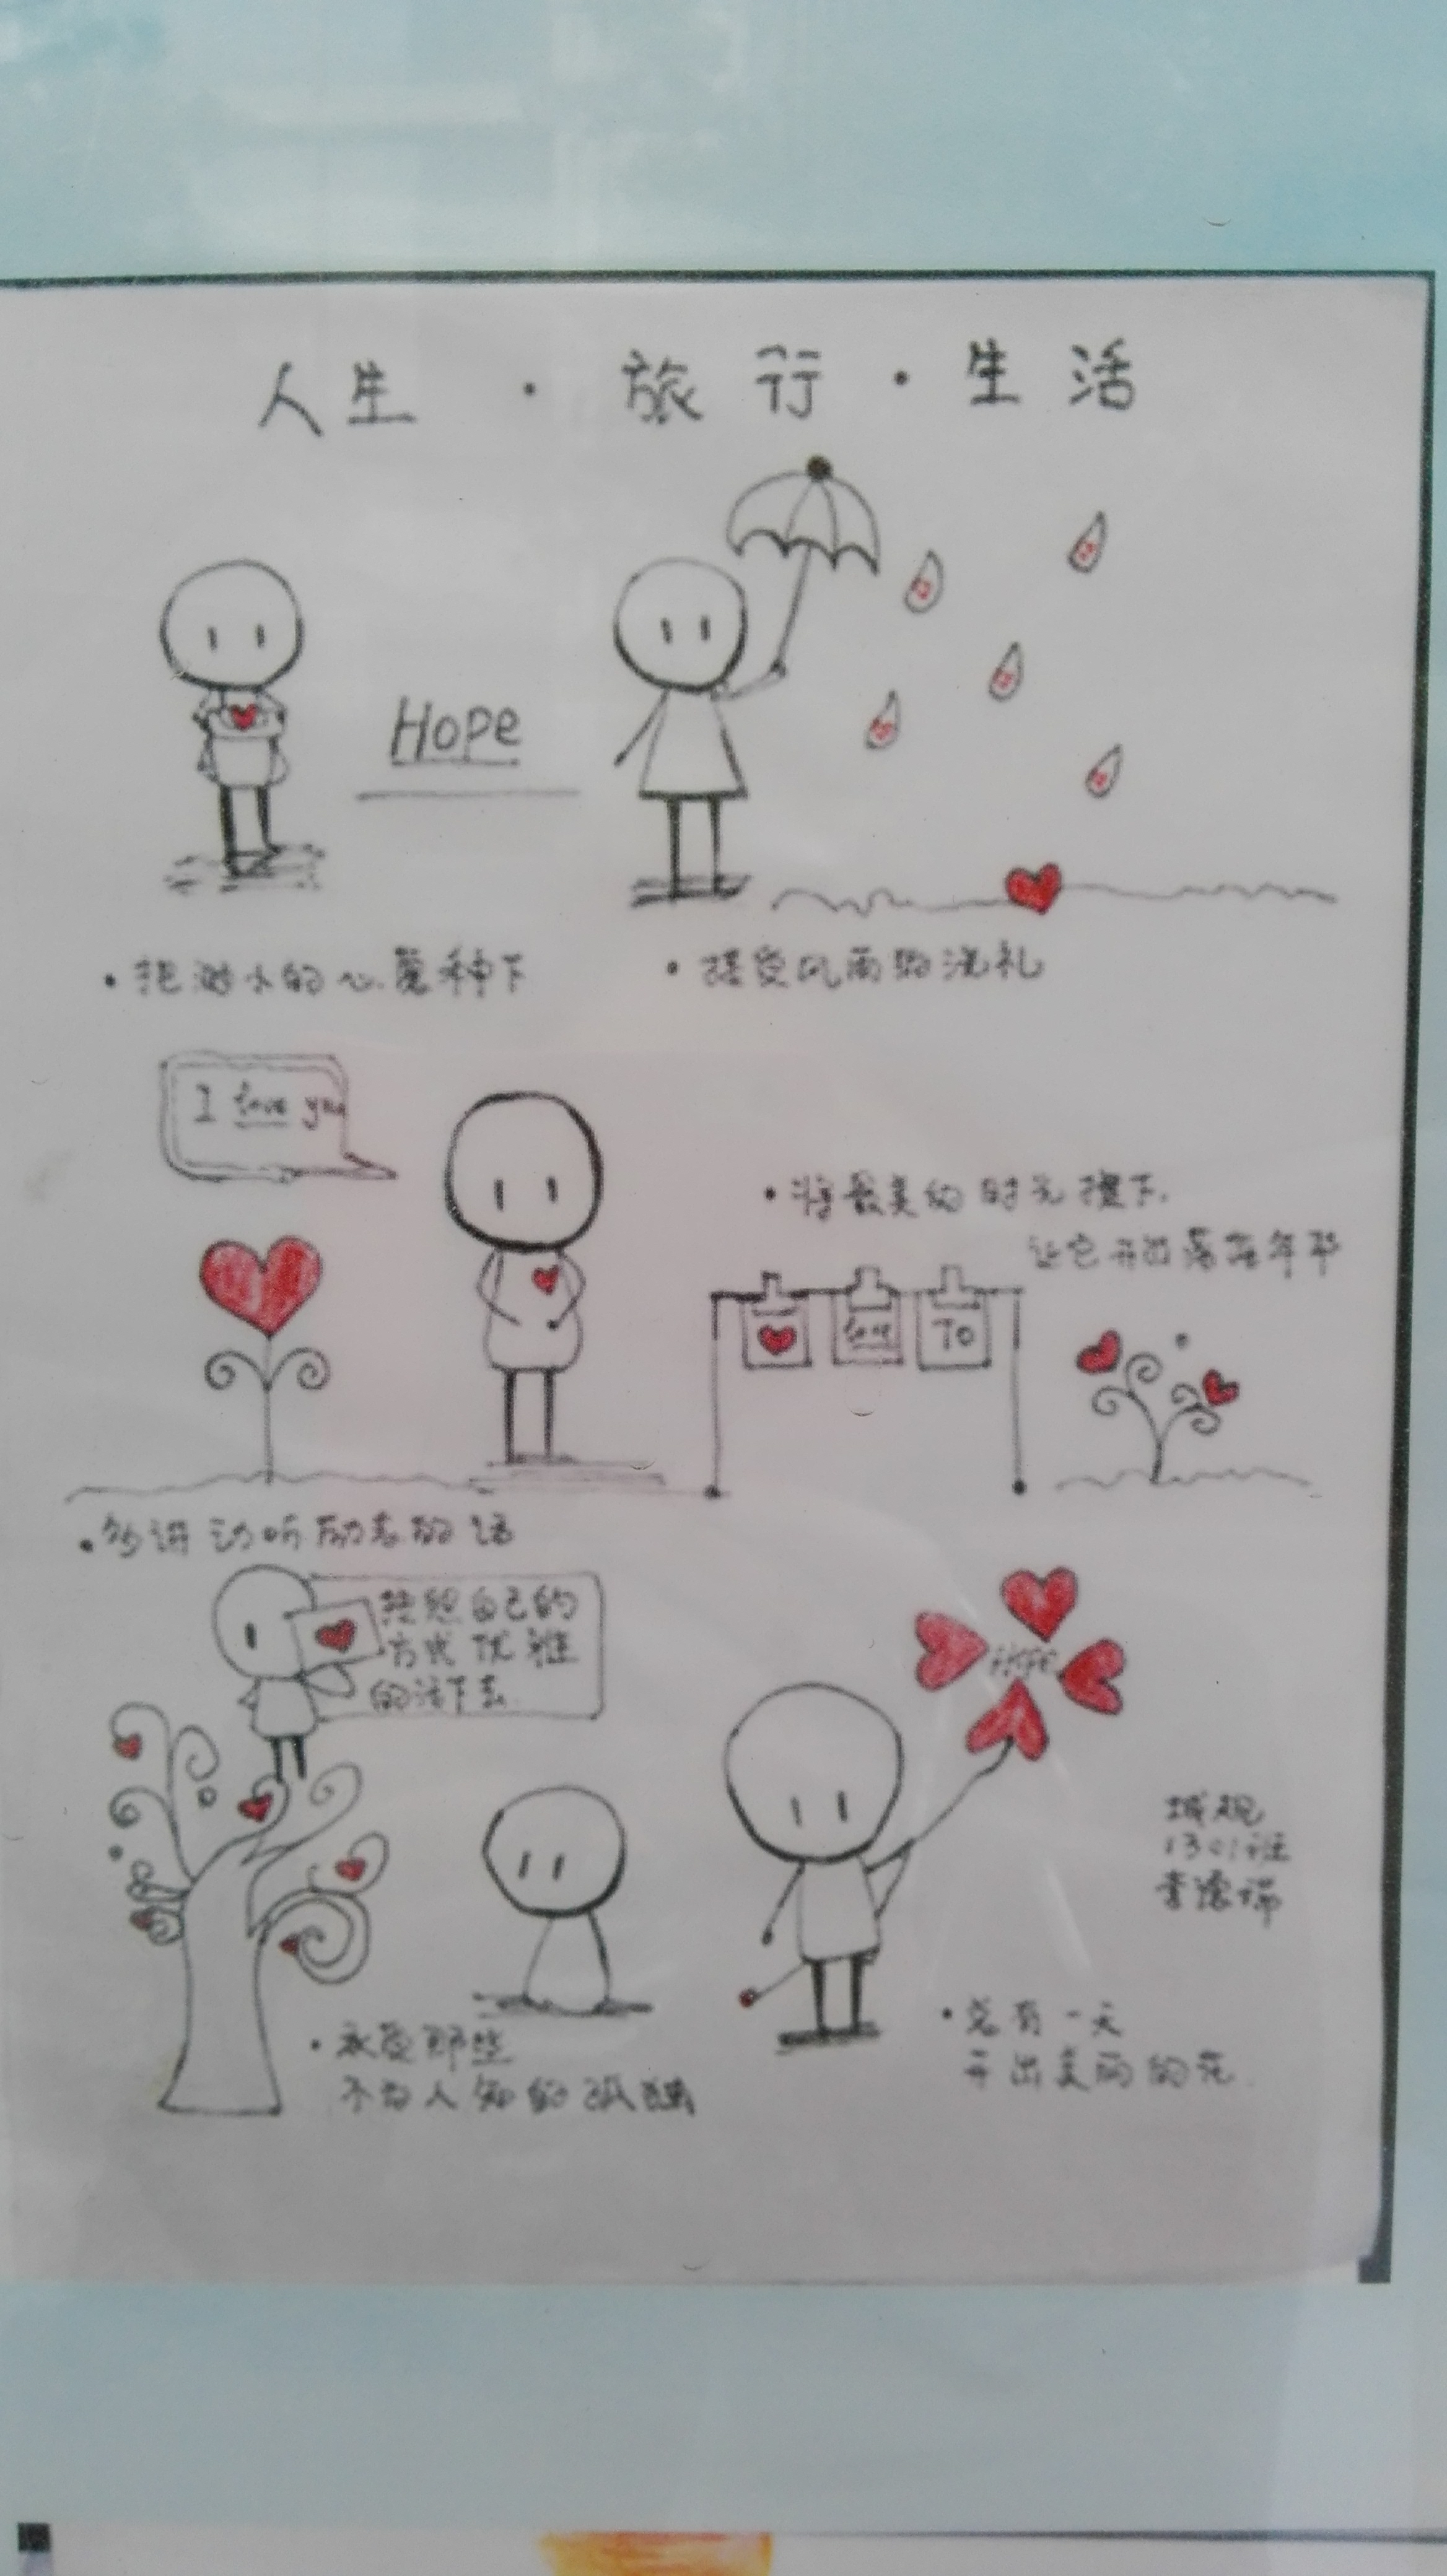 人生 · 旅行 · 生活
Hope
· 把渺小的心愿种下
· 接受风雨的洗礼
I love you
· 将最美的时光埋下
让它开出落在年华
love
To
· 多讲动听励志的话
按照自己的
方式优雅
的活下去
HOPE
城规
1301班
· 承受那些
不为人知的孤独
· 总有一天
开出美丽的花